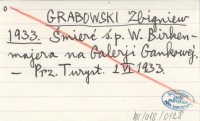 GRABOWSKI Zbigniew
1933. Śmierć ś.p. W. Birken-
majera na Galerji Gankowej.
- Prz. Turyst. 1 VI 1933.